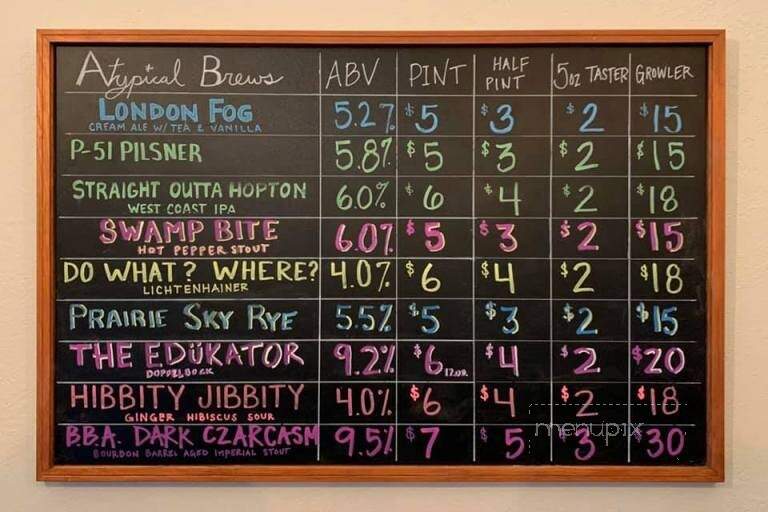 Atypical Brews ABV PINT HALF PINT 5oz TASTER GROWLER
LONDON FOG 5.2% $5 $3 $2 $15
CREAM ALE W/ TEA & VANILLA
P-51 PILSNER 5.8% $5 $3 $2 $15
STRAIGHT OUTTA HOPTON 6.0% $6 $4 $2 $18
WEST COAST IPA
SWAMP BITE 6.0% $5 $3 $2 $15
HOT PEPPER STOUT
DO WHAT? WHERE? 4.0% $6 $4 $2 $18
LICHTENHAINER
PRAIRIE SKY RYE 5.5% $5 $3 $2 $15
THE EDÜKATOR 9.2% $6 12oz. $4 $2 $20
DOPPELBOCK
HIBBITY JIBBITY 4.0% $6 $4 $2 $18
GINGER HIBISCUS SOUR
B.B.A. DARK CZARCASM 9.5% $7 $5 $3 $30
BOURBON BARREL AGED IMPERIAL STOUT
menupix